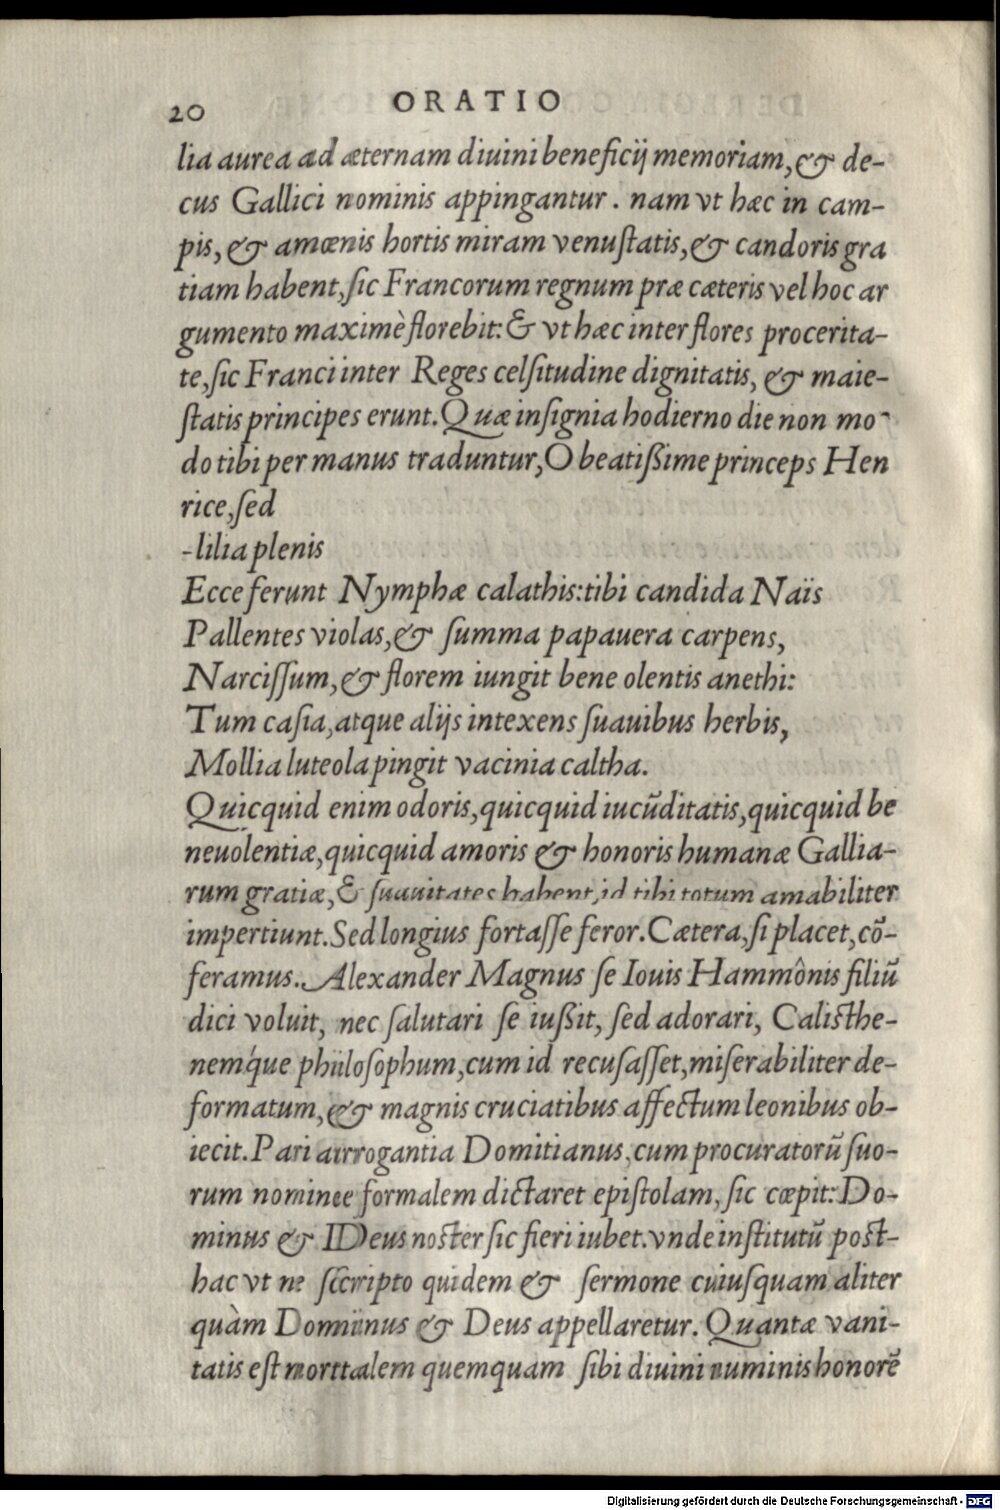 20 ORATIO
lia aurea ad æternam diuini beneficij memoriam, & de-
cus Gallici nominis appingantur. nam vt hæc in cam-
pis, & amœnis hortis miram venuſtatis, & candoris gra
tiam habent, ſic Francorum regnum præ cæteris vel hoc ar
gumento maximè florebit: & vt hæc inter flores procerita-
te, ſic Franci inter Reges celſitudine dignitatis, & maie-
ſtatis principes erunt. Quæ inſignia hodierno die non mo-
do tibi per manus traduntur, O beatißime princeps Hen
rice, ſed
-lilia plenis
Ecce ferunt Nymphæ calathis: tibi candida Naïs
Pallentes violas, & ſumma papauera carpens,
Narciſſum, & florem iungit bene olentis anethi:
Tum caſia, atque alijs intexens ſuauibus herbis,
Mollia luteola pingit vacinia caltha.
Quicquid enim odoris, quicquid iucūditatis, quicquid be
neuolentiæ, quicquid amoris & honoris humanæ Gallia-
rum gratiæ, & ſuauitates habent, id tibi totum amabiliter
impertiunt. Sed longius fortaſſe feror. Cætera, ſi placet, cō-
feramus. Alexander Magnus ſe Iouis Hammônis filiū
dici voluit, nec ſalutari ſe iußit, ſed adorari, Caliſthe-
nemq́ue philoſophum, cum id recuſaſſet, miſerabiliter de-
formatum, & magnis cruciatibus affectum leonibus ob-
iecit. Pari arrogantia Domitianus, cum procuratorū ſuo-
rum nomine formalem dictaret epiſtolam, ſic cœpit: Do-
minus & Deus noſter ſic fieri iubet. vnde inſtitutū poſt-
hac vt ne ſcripto quidem & ſermone cuiuſquam aliter
quàm Dominus & Deus appellaretur. Quantæ vani-
tatis eſt mortalem quemquam ſibi diuini numinis honorē
Digitalisierung gefördert durch die Deutsche Forschungsgemeinschaft - DFG